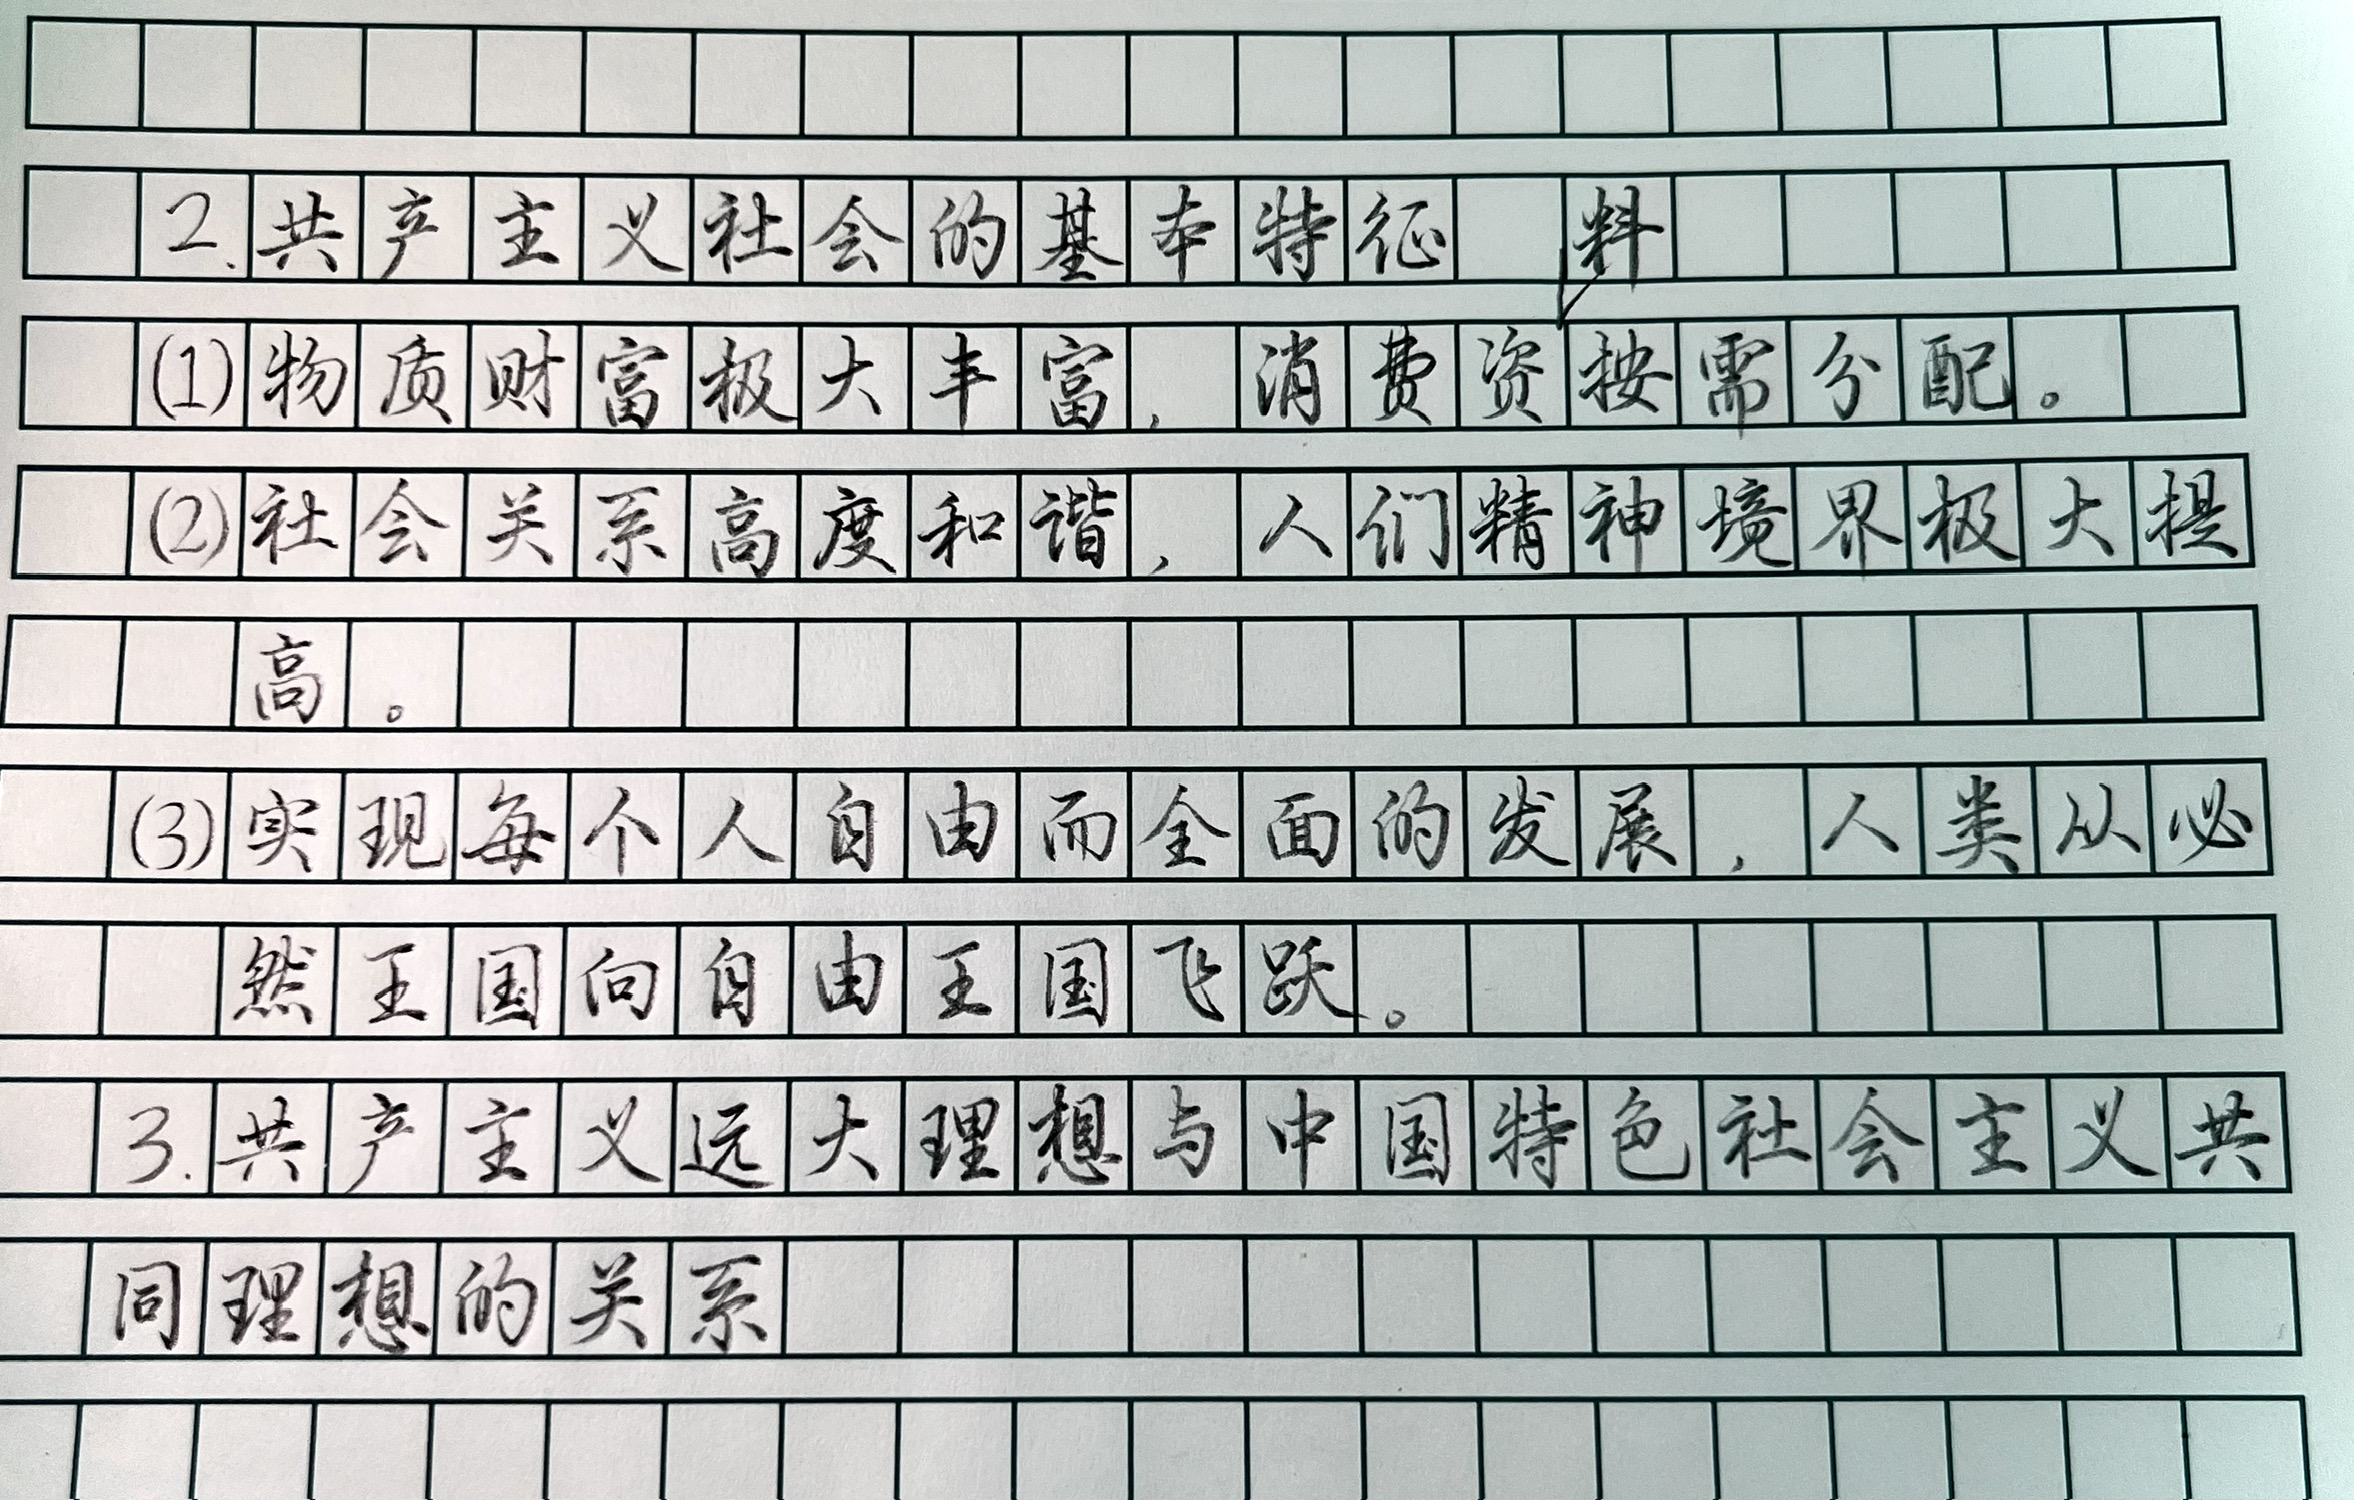 2.共产主义社会的基本特征
(1)物质财富极大丰富,消费资料按需分配。
(2)社会关系高度和谐,人们精神境界极大提
高。
(3)实现每个人自由而全面的发展,人类从必
然王国向自由王国飞跃。
3.共产主义远大理想与中国特色社会主义共
同理想的关系